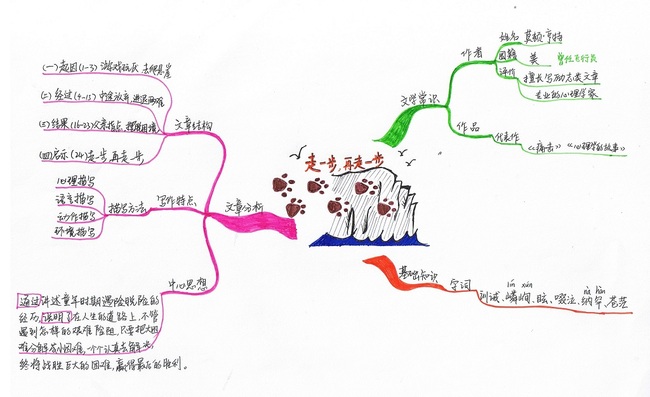 走一步,再走一步
文学常识
作者
姓名 莫顿·亨特
国籍 美 曾任飞行员
评价 擅长写励志类文章
专业的心理学家
作品
代表作
《痛击》《心理学的故事》
基础知识
字词
lín xún
nà hǎn
训诫、嶙峋、眩、啜泣、纳罕、苍茫
文章分析
文章结构
(一)起因(1-3)游戏玩厌
(二)经过(4-15)中途放弃,进退两难
(三)结果(16-23)父亲指点
(四)启示(24)走一步,再走一步
写作特点
描写方法
心理描写
语言描写
动作描写
环境描写
中心思想
通过讲述童年时期遇险脱险的
经历,说明了在人生的道路上,不管
遇到怎样的艰难险阻,只要把大困
难分解成小困难,一个个认真去解决
终将战胜巨大的困难,赢得最后的胜利。